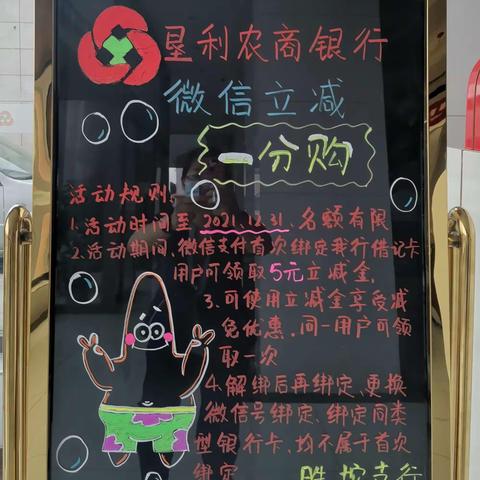 垦利农商银行
微信立减
一分购
活动规则:
1.活动时间至2021.12.31.名额有限
2.活动期间、微信支付首次绑定我行借记卡
用户可领取5元立减金.
3.可使用立减金享受减
免优惠.同一用户可领
取一次
4.解绑后再绑定、更换
微信号绑定、绑定同类
型银行卡、均不属于首次
绑定
胜坨支行